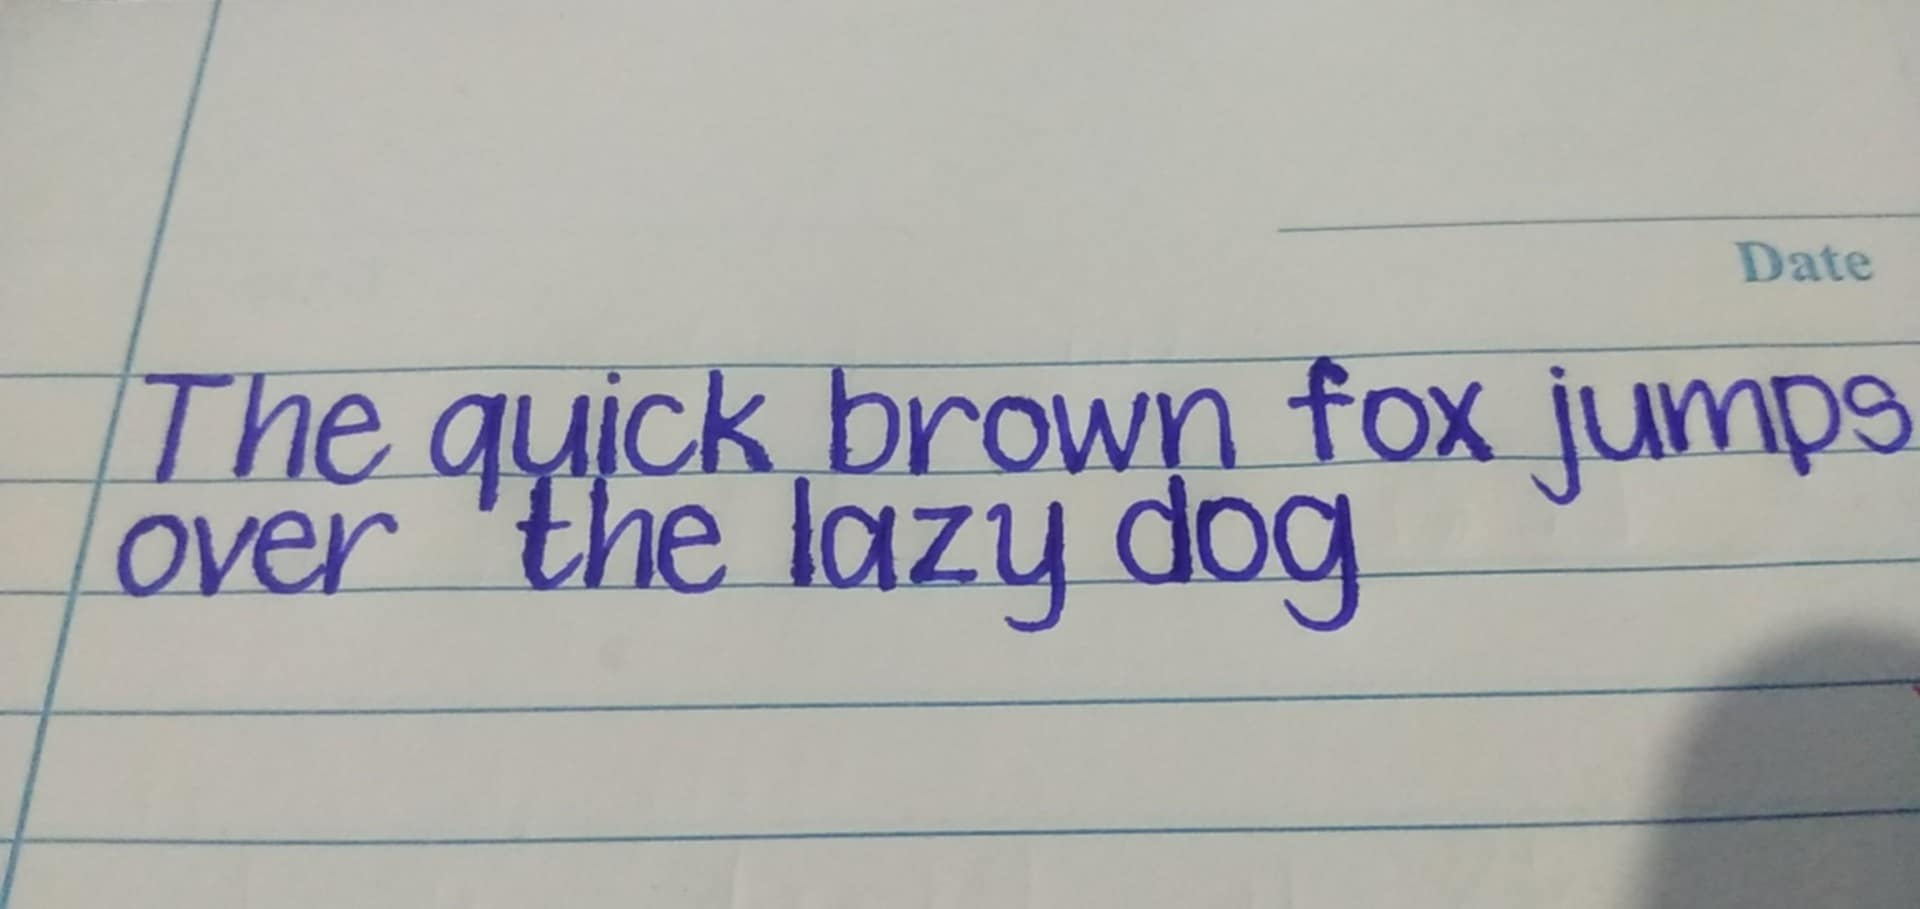 Date
The quick brown fox jumps
over the lazy dog